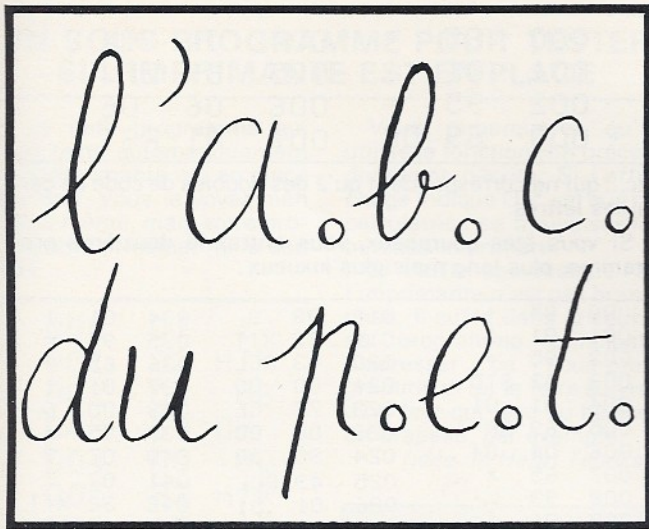 l'a.b.c.
du p.e.t.